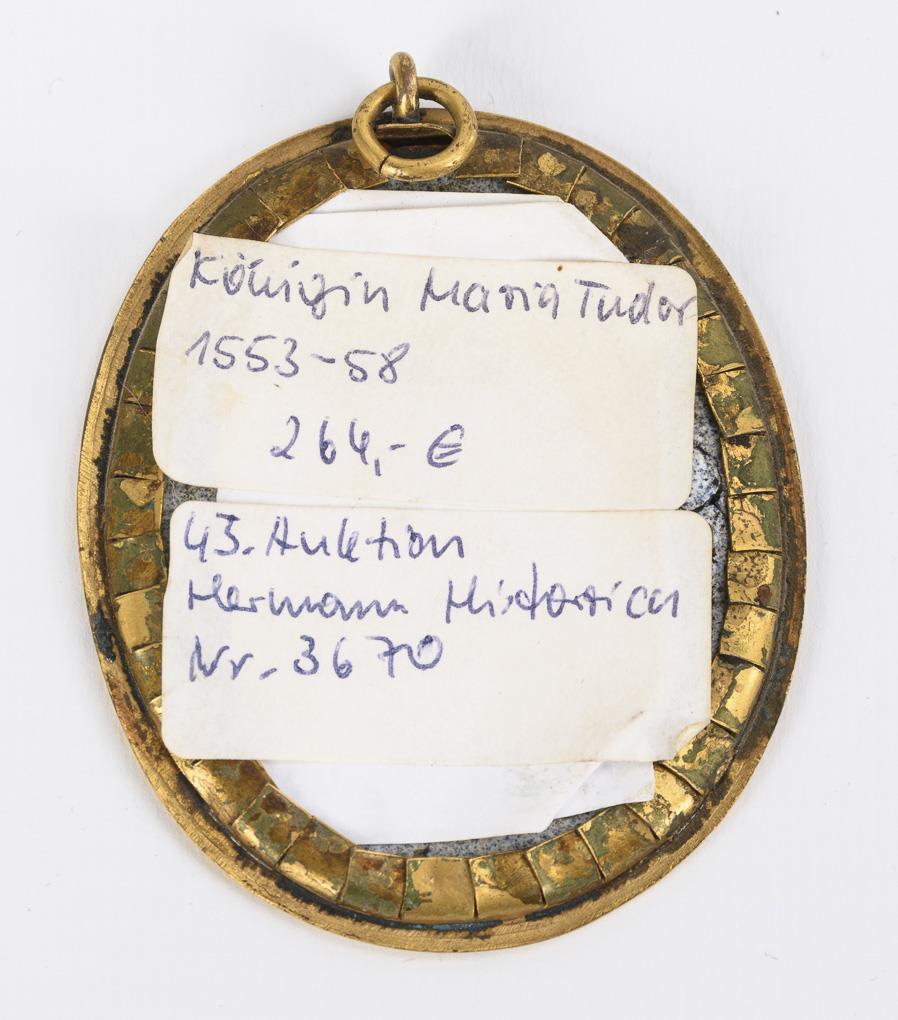 Königin Maria Tudor
1553-58
264,- €
43. Auktion
Hermann Historica
Nr. 3670